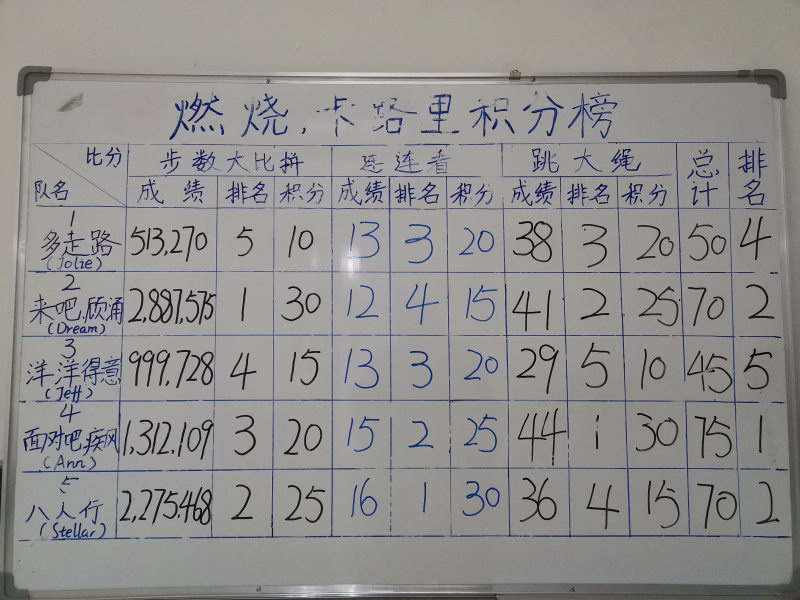 燃烧,卡路里积分榜
比分 步数大比拼 连连看 跳大绳 总计 排名
队名 成绩 排名 积分 成绩 排名 积分 成绩 排名 积分
1
多走路 513,270 5 10 13 3 20 38 3 20 50 4
(Jolie)
2
来吧,颀涌 2,887,575 1 30 12 4 15 41 2 25 70 2
(Dream)
3
洋洋得意 999,728 4 15 13 3 20 29 5 10 45 5
(Jeff)
4
面对吧疾风 1,312,109 3 20 15 2 25 44 1 30 75 1
(Ann)
5
八人行 2,275,468 2 25 16 1 30 36 4 15 70 2
(Stellar)